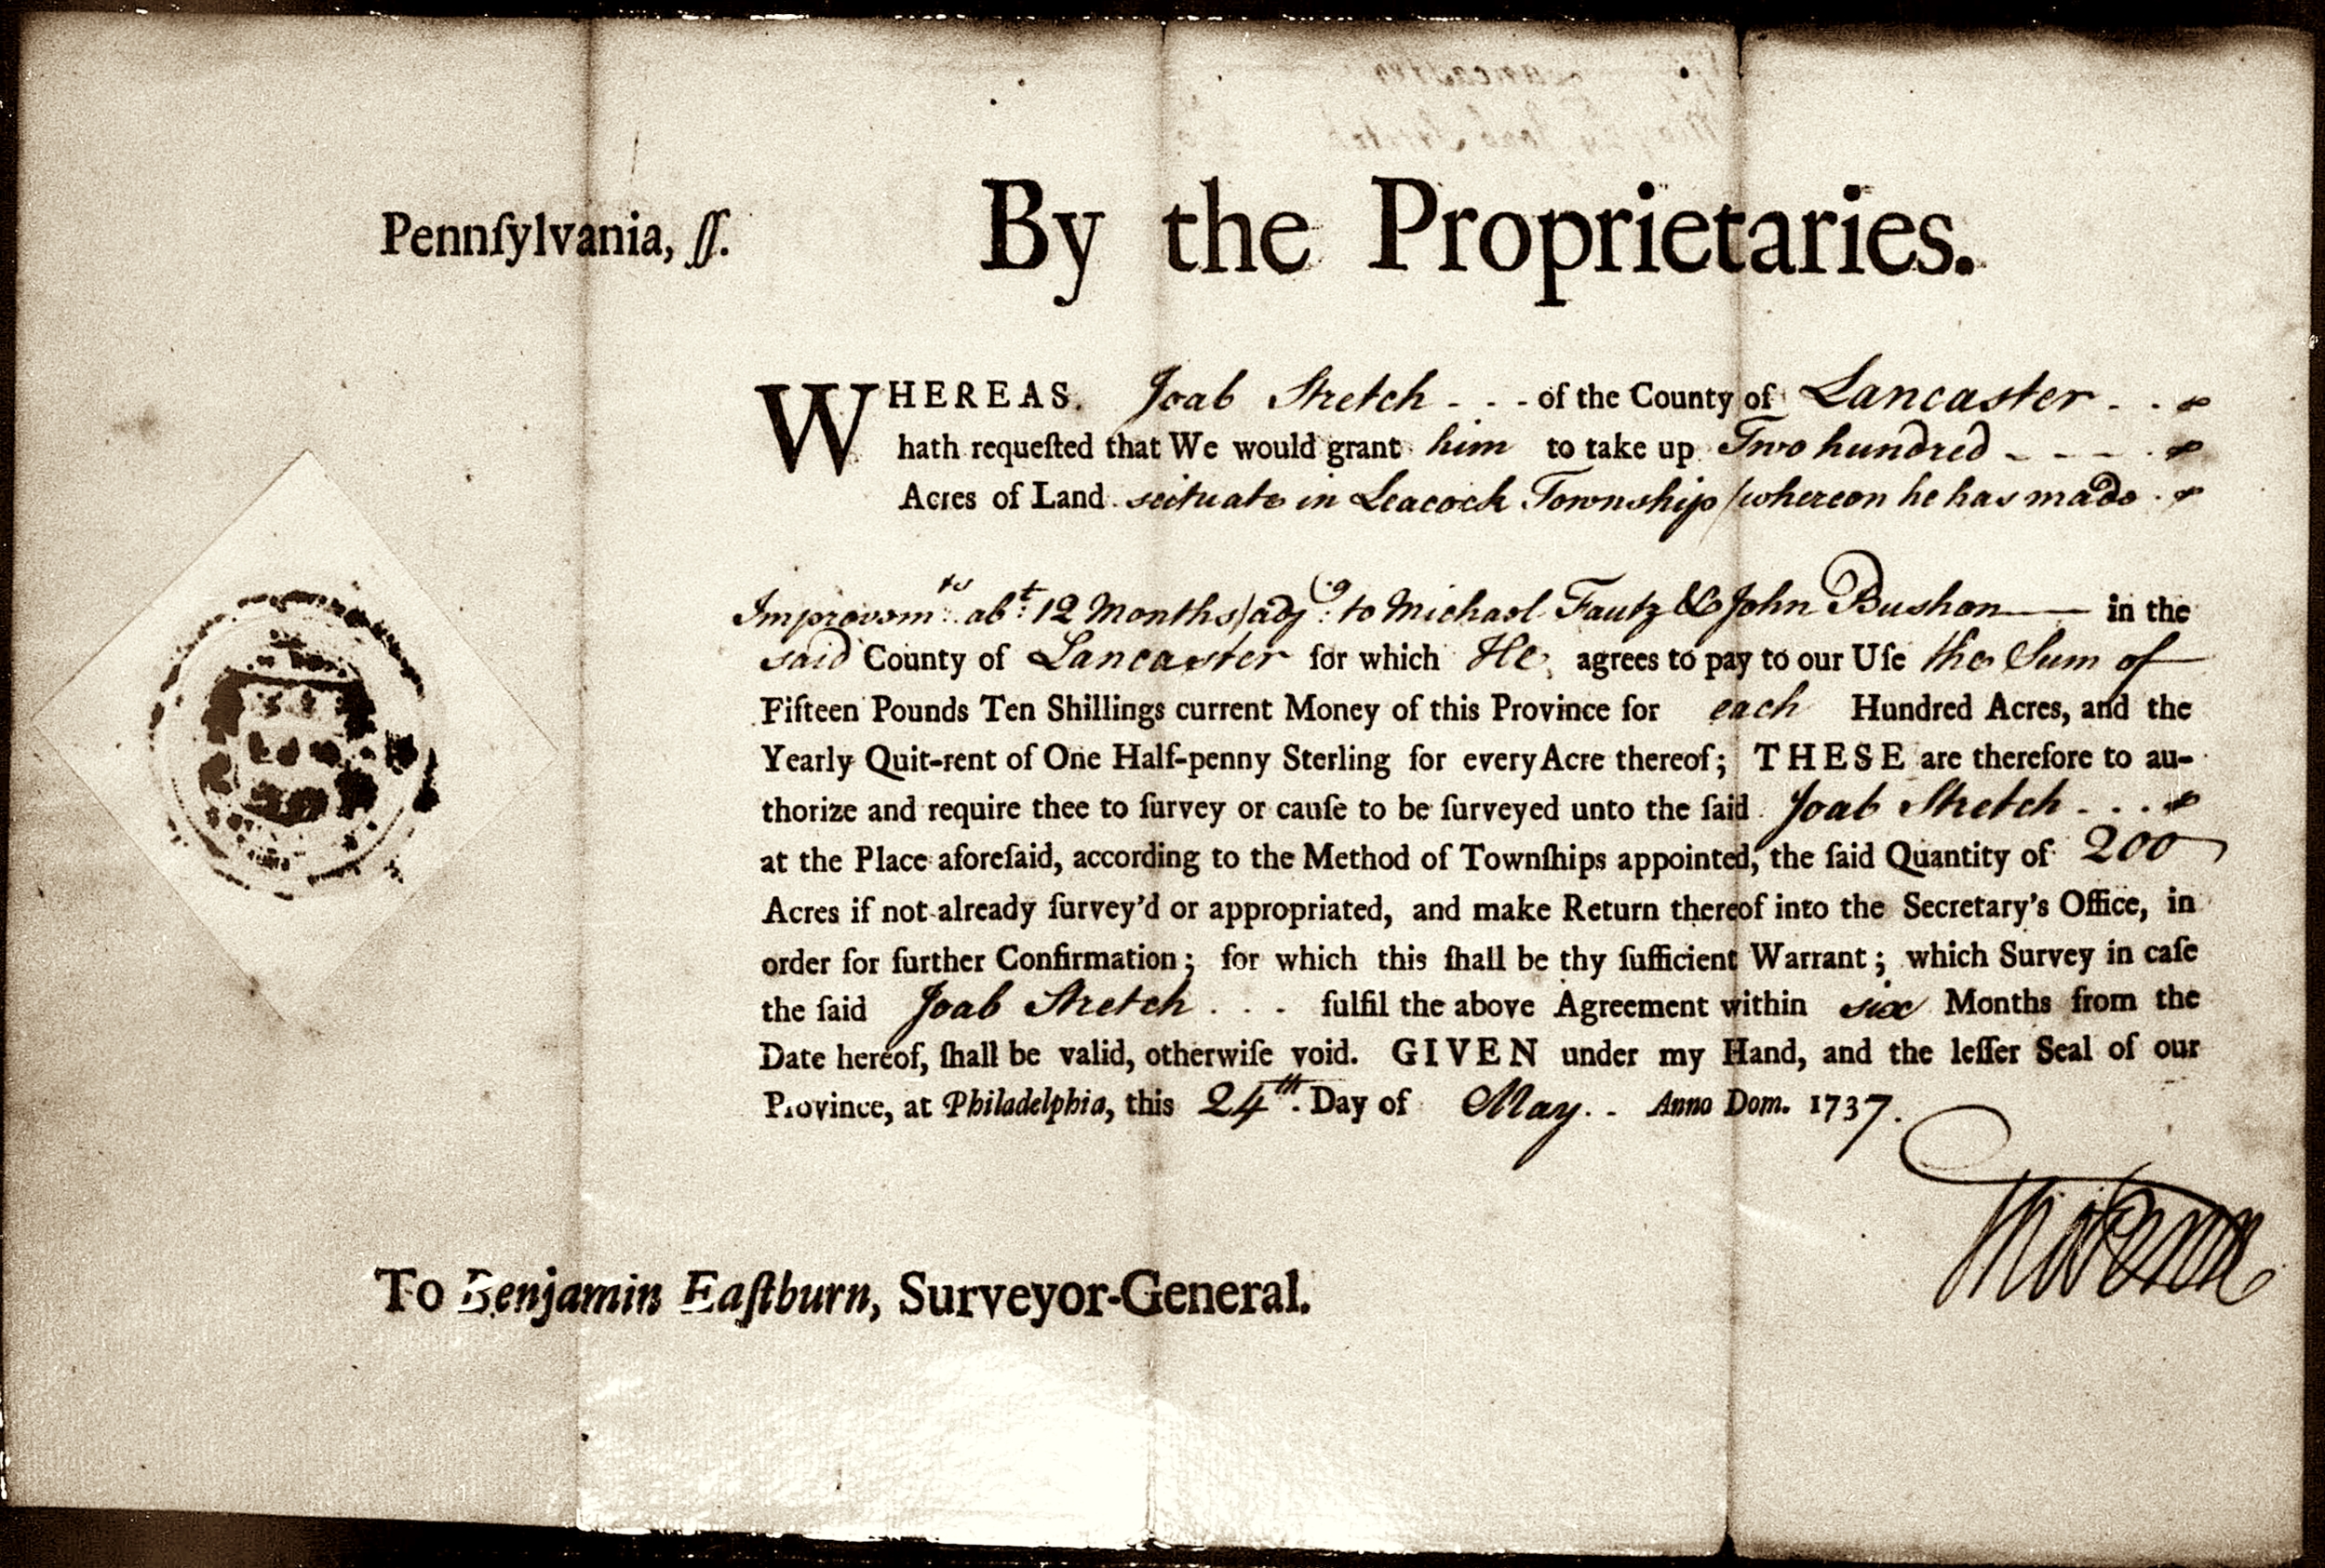 Pennſylvania, ſſ.
By the Proprietaries.
WHEREAS. Joab Stretch - - - of the County of Lancaster - - -
hath requeſted that We would grant him to take up Two hundred - - - -
Acres of Land scituate in Leacock Township /whereon he has made
Improvemts. abt. 12 Months/ adjg. to Michael Fautz & John Bushon— in the
said County of Lancaster for which He agrees to pay to our Uſe the Sum of
Fifteen Pounds Ten Shillings current Money of this Province for each Hundred Acres, and the
Yearly Quit-rent of One Half-penny Sterling for every Acre thereof; THESE are therefore to au-
thorize and require thee to ſurvey or cauſe to be ſurveyed unto the ſaid Joab Stretch - - -
at the Place aforeſaid, according to the Method of Townſhips appointed, the ſaid Quantity of 200
Acres if not already ſurvey'd or appropriated, and make Return thereof into the Secretary's Office, in
order for further Confirmation; for which this ſhall be thy ſufficient Warrant; which Survey in caſe
the ſaid Joab Stretch . . - fulfil the above Agreement within six Months from the
Date hereof, ſhall be valid, otherwiſe void. GIVEN under my Hand, and the leſſer Seal of our
Province, at Philadelphia, this 24th. Day of May. - Anno Dom. 1737.
Tho Penn
To Benjamin Eaſtburn, Surveyor-General.